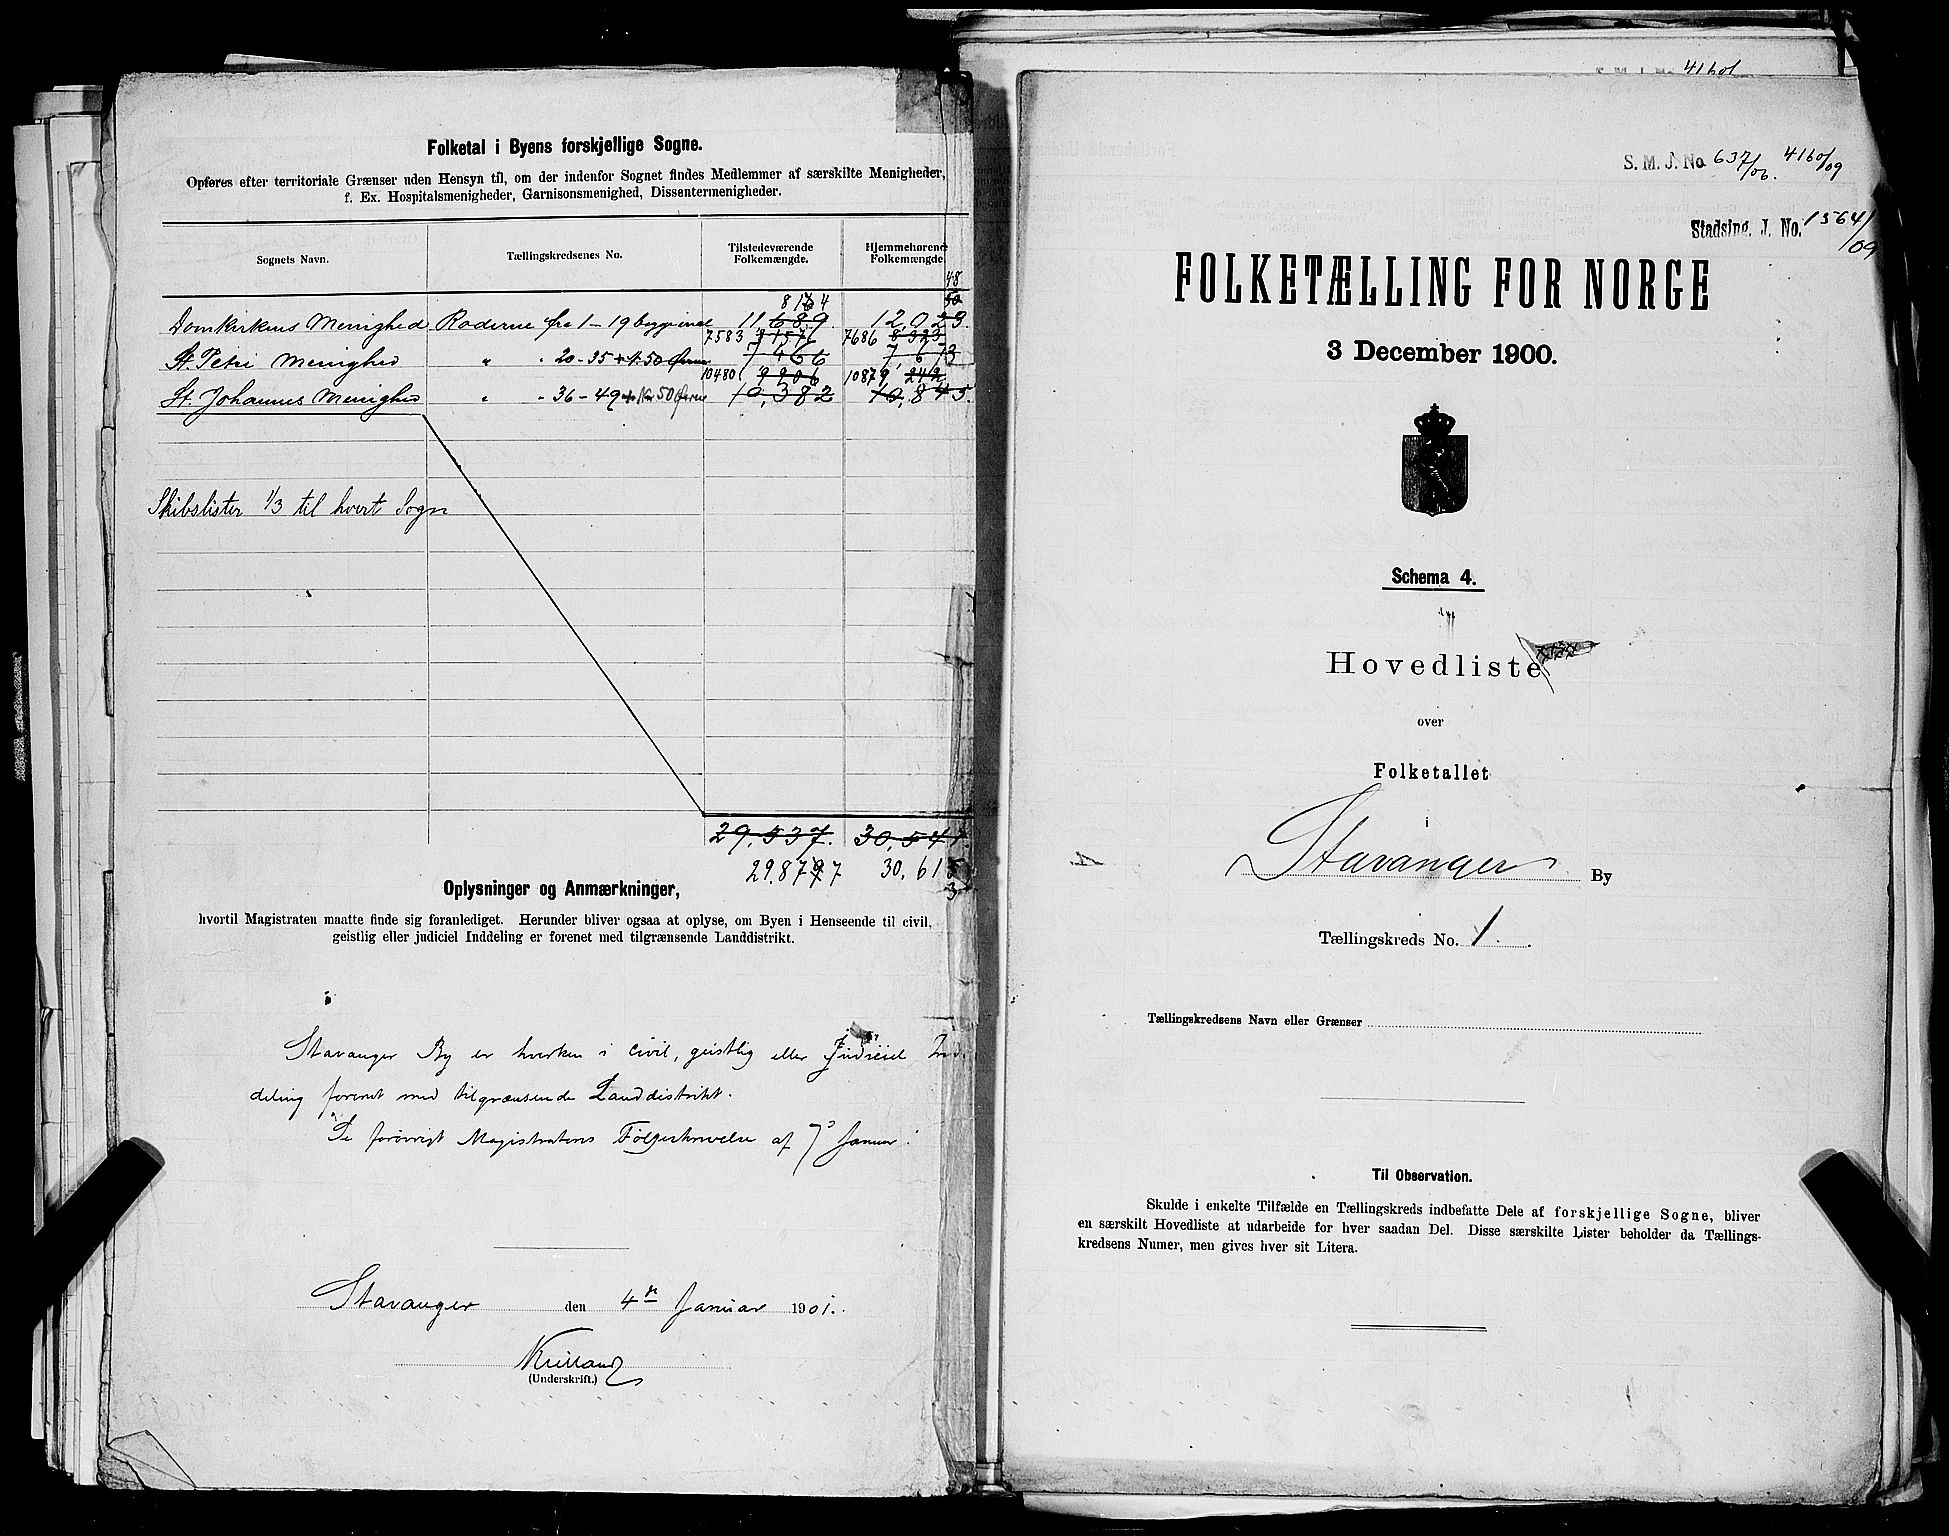 Folketal i Byens forskjellige Sogne.
Opføres efter territoriale Grænser uden Hensyn til, om der indenfor Sognet findes Medlemmer af særskilte Menigheder,
f. Ex. Hospitalsmenigheder, Garnisonsmenighed, Dissentermenigheder.
Sognets Navn. Tællingskredsenes No. Tilstedeværende Folkemængde. Hjemmehørende Folkemængde.
48
Domkirkens Menighed Roderne fra 1-19 begge incl 11,689. 12,023
7583 7686
St. Petri Menighed " " 20-35 7466 7,673
10480 9906 10879 242
St. Johannes Menighed " " 36-49 10,382 10,845.
Skibslister 1/3 til hvert Sogn
29,537. 30,541.
Oplysninger og Anmærkninger,
hvortil Magistraten maatte finde sig foranlediget. Herunder bliver ogsaa at oplyse, om Byen i Henseende til civil,
geistlig eller judiciel Inddeling er forenet med tilgrænsende Landdistrikt.
Stavanger By er hverken i civil, geistlig eller Judiciel Ind
deling forenet med tilgrænsende Landdistrikt.
Se forøvrigt Magistratens Følgeskrivelse af 7 Januar.
Stavanger den 4de Januar 1901.
Kielland
(Underskrift.)
41601
S. M. J. No 637/06. 4160/09
Stadsing. J. No. 1564/09
FOLKETÆLLING FOR NORGE
3 December 1900.
Schema 4.
Hovedliste
over
Folketallet
i
Stavanger By
Tællingskreds No. 1.
Tællingskredsens Navn eller Grænser
Til Observation.
Skulde i enkelte Tilfælde en Tællingskreds indbefatte Dele af forskjellige Sogne, bliver
en særskilt Hovedliste at udarbeide for hver saadan Del. Disse særskilte Lister beholder da Tællings-
kredsens Numer, men gives hver sit Litera.